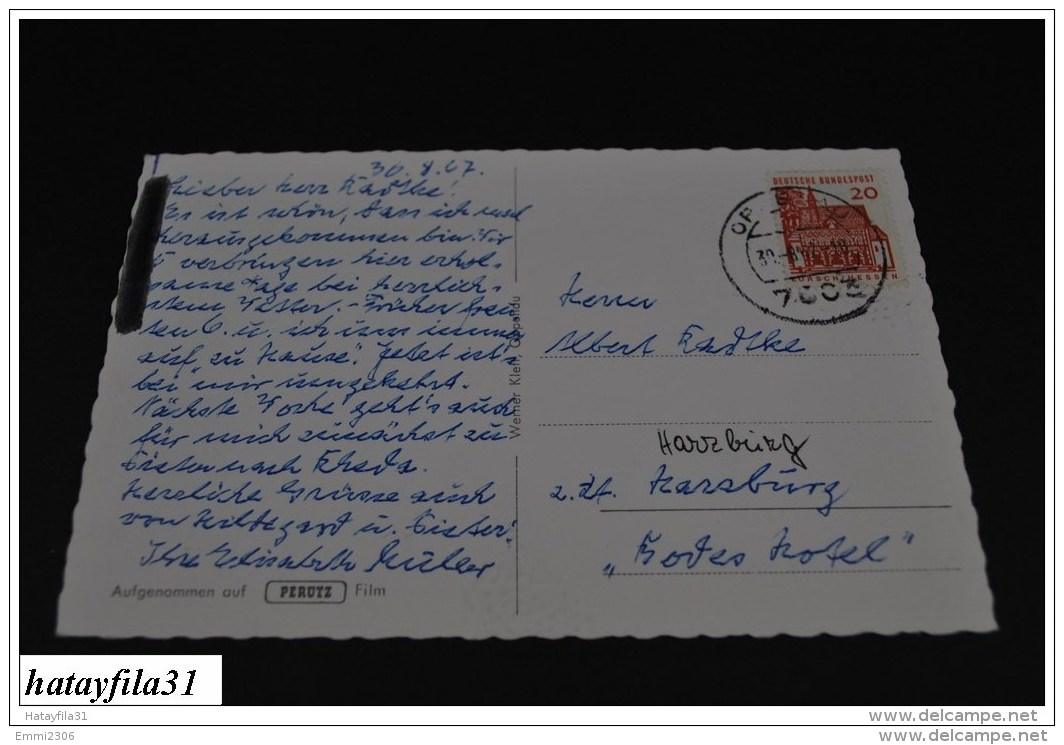 30.8.67.
Lieber Herr Radtke!
Es ist schön, dass ich noch
herausgekommen bin. Wir
verbringen hier erhol-
same Tage bei herrlich-
stem Wetter. - Früher freu-
ten G. u. ich uns immer
auf "zu Hause". Jetzt ist's
bei mir umgekehrt.
Nächste Woche geht's auch
für mich zunächst zu
nach
Herzliche Grüsse auch
von Hildegard u.
Ihre Elisabeth Müller
Aufgenommen auf PERUTZ Film
Werner Klein, Oppenau
DEUTSCHE BUNDESPOST
20
LORSCH/HESSEN
Herrn
Albert Radtke
Harzburg
z. Zt. Harzburg
"Bodes Hotel"
hatayfila31
Hatayfila31
Emmi2306
www.delcampe.net
www.delcampe.net